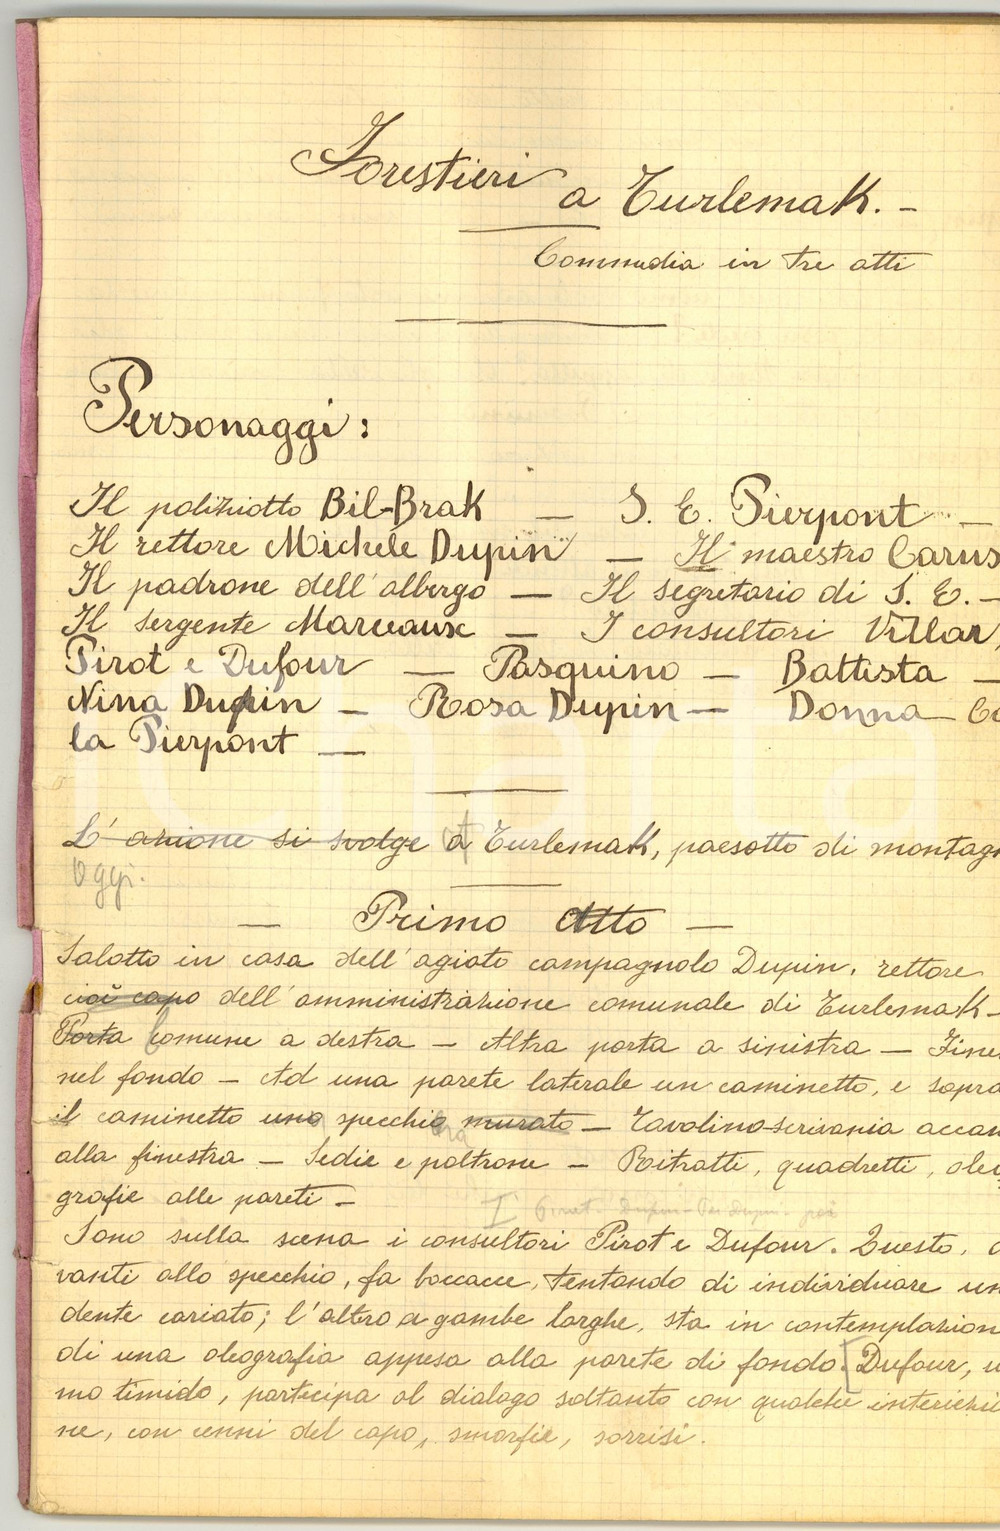 Forestieri a Turlemak. -
Commedia in tre atti
Personaggi:
Il poliziotto Bil-Brak — S. E. Pierpont —
Il rettore Michele Dupin — Il maestro Carus
Il padrone dell'albergo — Il segretario di S. E. —
Il sergente Marceaux — I consultori Villar,
Pirot e Dufour — Pasquino — Battista —
Nina Dupin — Rosa Dupin — Donna Ca
la Pierpont —
L'azione si svolge a Turlemak, paesotto di montagn
Oggi.
— Primo Atto —
Salotto in casa dell'agiato campagnolo Dupin, rettore
cioè capo dell'amministrazione comunale di Turlemak —
Porta comune a destra — Altra porta a sinistra — Fine
nel fondo — Ad una parete laterale un caminetto, e sopra
il caminetto uno specchio murato — Tavolino-scrivania accan
alla finestra — Sedie e poltrone — Ritratti, quadretti, oleo
grafie alle pareti —
Sono sulla scena i consultori Pirot e Dufour. Questo, d
vanti allo specchio, fa boccacce, tentando di individuare un
dente cariato; l'altro, a gambe larghe, sta in contemplazion
di una oleografia appesa alla parete di fondo. Dufour, u
mo timido, partecipa al dialogo soltanto con qualche interiezi
ne, con cenni del capo, smorfie, sorrisi.